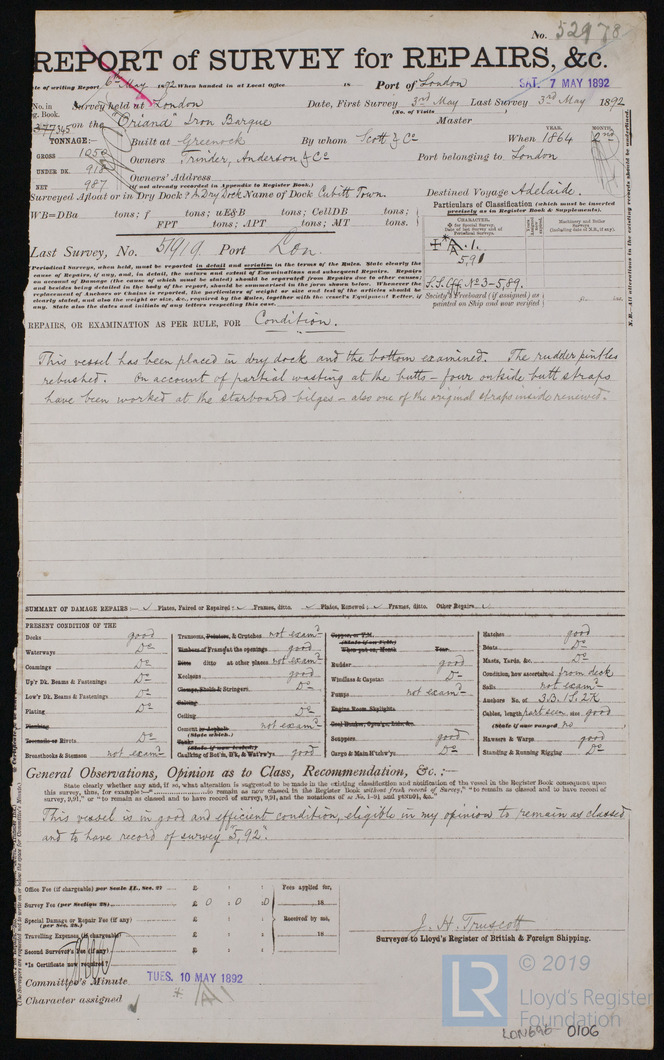 No. 52978
REPORT of SURVEY for REPAIRS, &c.
Date of writing Report 6th May 1892 When handed in at Local Office 18 Port of London SAT. 7 MAY 1892
No. in Reg. Book. Survey held at London Date, First Survey 3rd May Last Survey 3rd May 1892
(No. of Visits )
on the "Oriana" Iron Barque Master
TONNAGE:— Built at Greenock By whom Scott & Co When 1864 YEAR. MONTH.
GROSS 1050 Owners Trinder, Anderson & Co Port belonging to London
UNDER DK. Owners' Address
NET 987 (if not already recorded in Appendix to Register Book.)
Surveyed Afloat or in Dry Dock? A Dry Dock Name of Dock Cubitt Town. Destined Voyage Adelaide.
WB=DBa tons; f tons; uE&B tons; CellDB tons;
FPT tons; APT tons; MT tons.
Particulars of Classification (which must be inserted precisely as in Register Book & Supplements).
Last Survey, No. 51919 Port Lon.
CHARACTER.
A. 1.
5,91
S.S. Cff. No 3-5,89.
Society's Freeboard (if assigned) as painted on Ship and now verified ft. ins.
Periodical Surveys, when held, must be reported in detail and seriatim in the terms of the Rules. State clearly the
cause of Repairs, if any, and, in detail, the nature and extent of Examinations and subsequent Repairs. Repairs
on account of Damage (the cause of which must be stated) should be separated from Repairs due to other causes;
and besides being detailed in the body of the report, should be summarised in the form shewn below. Whenever the
replacement of Anchors or Chains is reported, the particulars of weight or size and test of the articles should be
clearly stated, and also the weight or size, &c., required by the Rules, together with the vessel's Equipment Letter, if
any. State also the dates and initials of any letters respecting this case.
N.B. All alterations in the existing vessels should be underlined.
REPAIRS, OR EXAMINATION AS PER RULE, FOR Condition.
This vessel has been placed in dry dock and the bottom examined. The rudder pintles
rebushed. On account of partial wasting at the butts – four outside butt straps
have been worked at the starboard bilges – also one of the original straps inside renewed.
SUMMARY OF DAMAGE REPAIRS:— Plates, Faired or Repaired; Frames, ditto. Plates, Renewed; Frames, ditto. Other Repairs
PRESENT CONDITION OF THE
Decks good
Waterways Do
Coamings Do
Up'r Dk. Beams & Fastenings Do
Low'r Dk. Beams & Fastenings Do
Plating Do
Planking
Treenails or Rivets Do
Breasthooks & Stemson not examd
Transoms, Pointers, & Crutches not examd
Timbers of Frame at the openings good
Ditto ditto at other places not examd
Keelsons good
Clamps, Shelfs & Stringers Do
Salting
Ceiling Do
Cement or Asphalt not examd
(State which.)
Tanks
(State if now tested)
Caulking of Bot'm, D'k, & Wat'rw'ys good
Copper, or Y.M.
(State if on Felt.)
When put on, Month Year
Rudder good
Windlass & Capstan Do
Pumps not examd
Engine Room Skylights
Coal Bunker, Open'gs, Lids, &c.
Scuppers good
Cargo & Main H'tchw'ys Do
Hatches good
Boats Do
Masts, Yards, &c. Do
Condition, how ascertained from deck
Sails not examd
Anchors No. of 3.B. 1S. 2K
Cables, length part seen size good
(State if now ranged no )
Hawsers & Warps good
Standing & Running Rigging Do
General Observations, Opinion as to Class, Recommendation, &c. :—
State clearly whether any and, if so, what alteration is suggested to be made in the existing classification and notification of the vessel in the Register Book consequent upon
this survey, thus, for example:— "to remain as now classed in the Register Book without fresh record of Survey," "to remain as classed and to have record of
survey, 9,91," or "to remain as classed and to have record of survey, 9,91, and the notations of ss No. 1-91 and ptND91, &c."
This vessel is in good and efficient condition, eligible in my opinion to remain as classed
and to have record of survey "5, 92".
Office Fee (if chargeable) per Scale II., Sec. 27 £ : :
Survey Fee (per Section 28) £ 0 : 0 : 0
Special Damage or Repair Fee (if any) £ : :
(per Sec. 28.)
Travelling Expenses (if chargeable) £ : :
Second Surveyor's Fee (if any) £
*Is Certificate now required?
Fees applied for,
18
Received by me,
18
J. H. Truscott
Surveyor to Lloyd's Register of British & Foreign Shipping.
Committee's Minute TUES. 10 MAY 1892
Character assigned
LR © 2019
Lloyd's Register
Foundation
LON696-0106